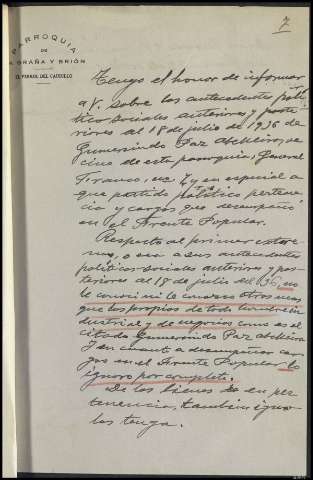 7
PARROQUIA
DE
LA GRAÑA Y BRIÓN
EL FERROL DEL CAUDILLO
Tengo el honor de informar
a V. sobre los antecedentes polí-
tico-sociales anteriores y poste-
riores al 18 de julio de 1936 de
Gumersindo Paz Abelleira, ve-
cino de esta parroquia, General
Franco, y en especial a
que partido político pertene-
cia y cargos que desempeñó
en el Frente Popular.
Respecto al primer extre-
mo, o sea a sus antecedentes
políticos-sociales anteriores y pos-
teriores al 18 de julio del 936, no
le conocí ni le conozco otros mas
que los propios de todo hombre in-
dustrial y de negocios como es el
citado Gumersindo Paz Abelleira
Y en cuanto a desempeñar car-
gos en el Frente Popular lo
ignoro por completo.
De los bienes en per-
tenencia, tambien igno-
los tenga.